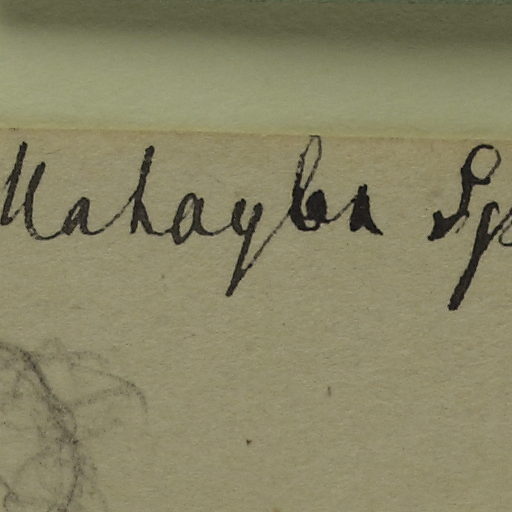 Mahaylba Sp